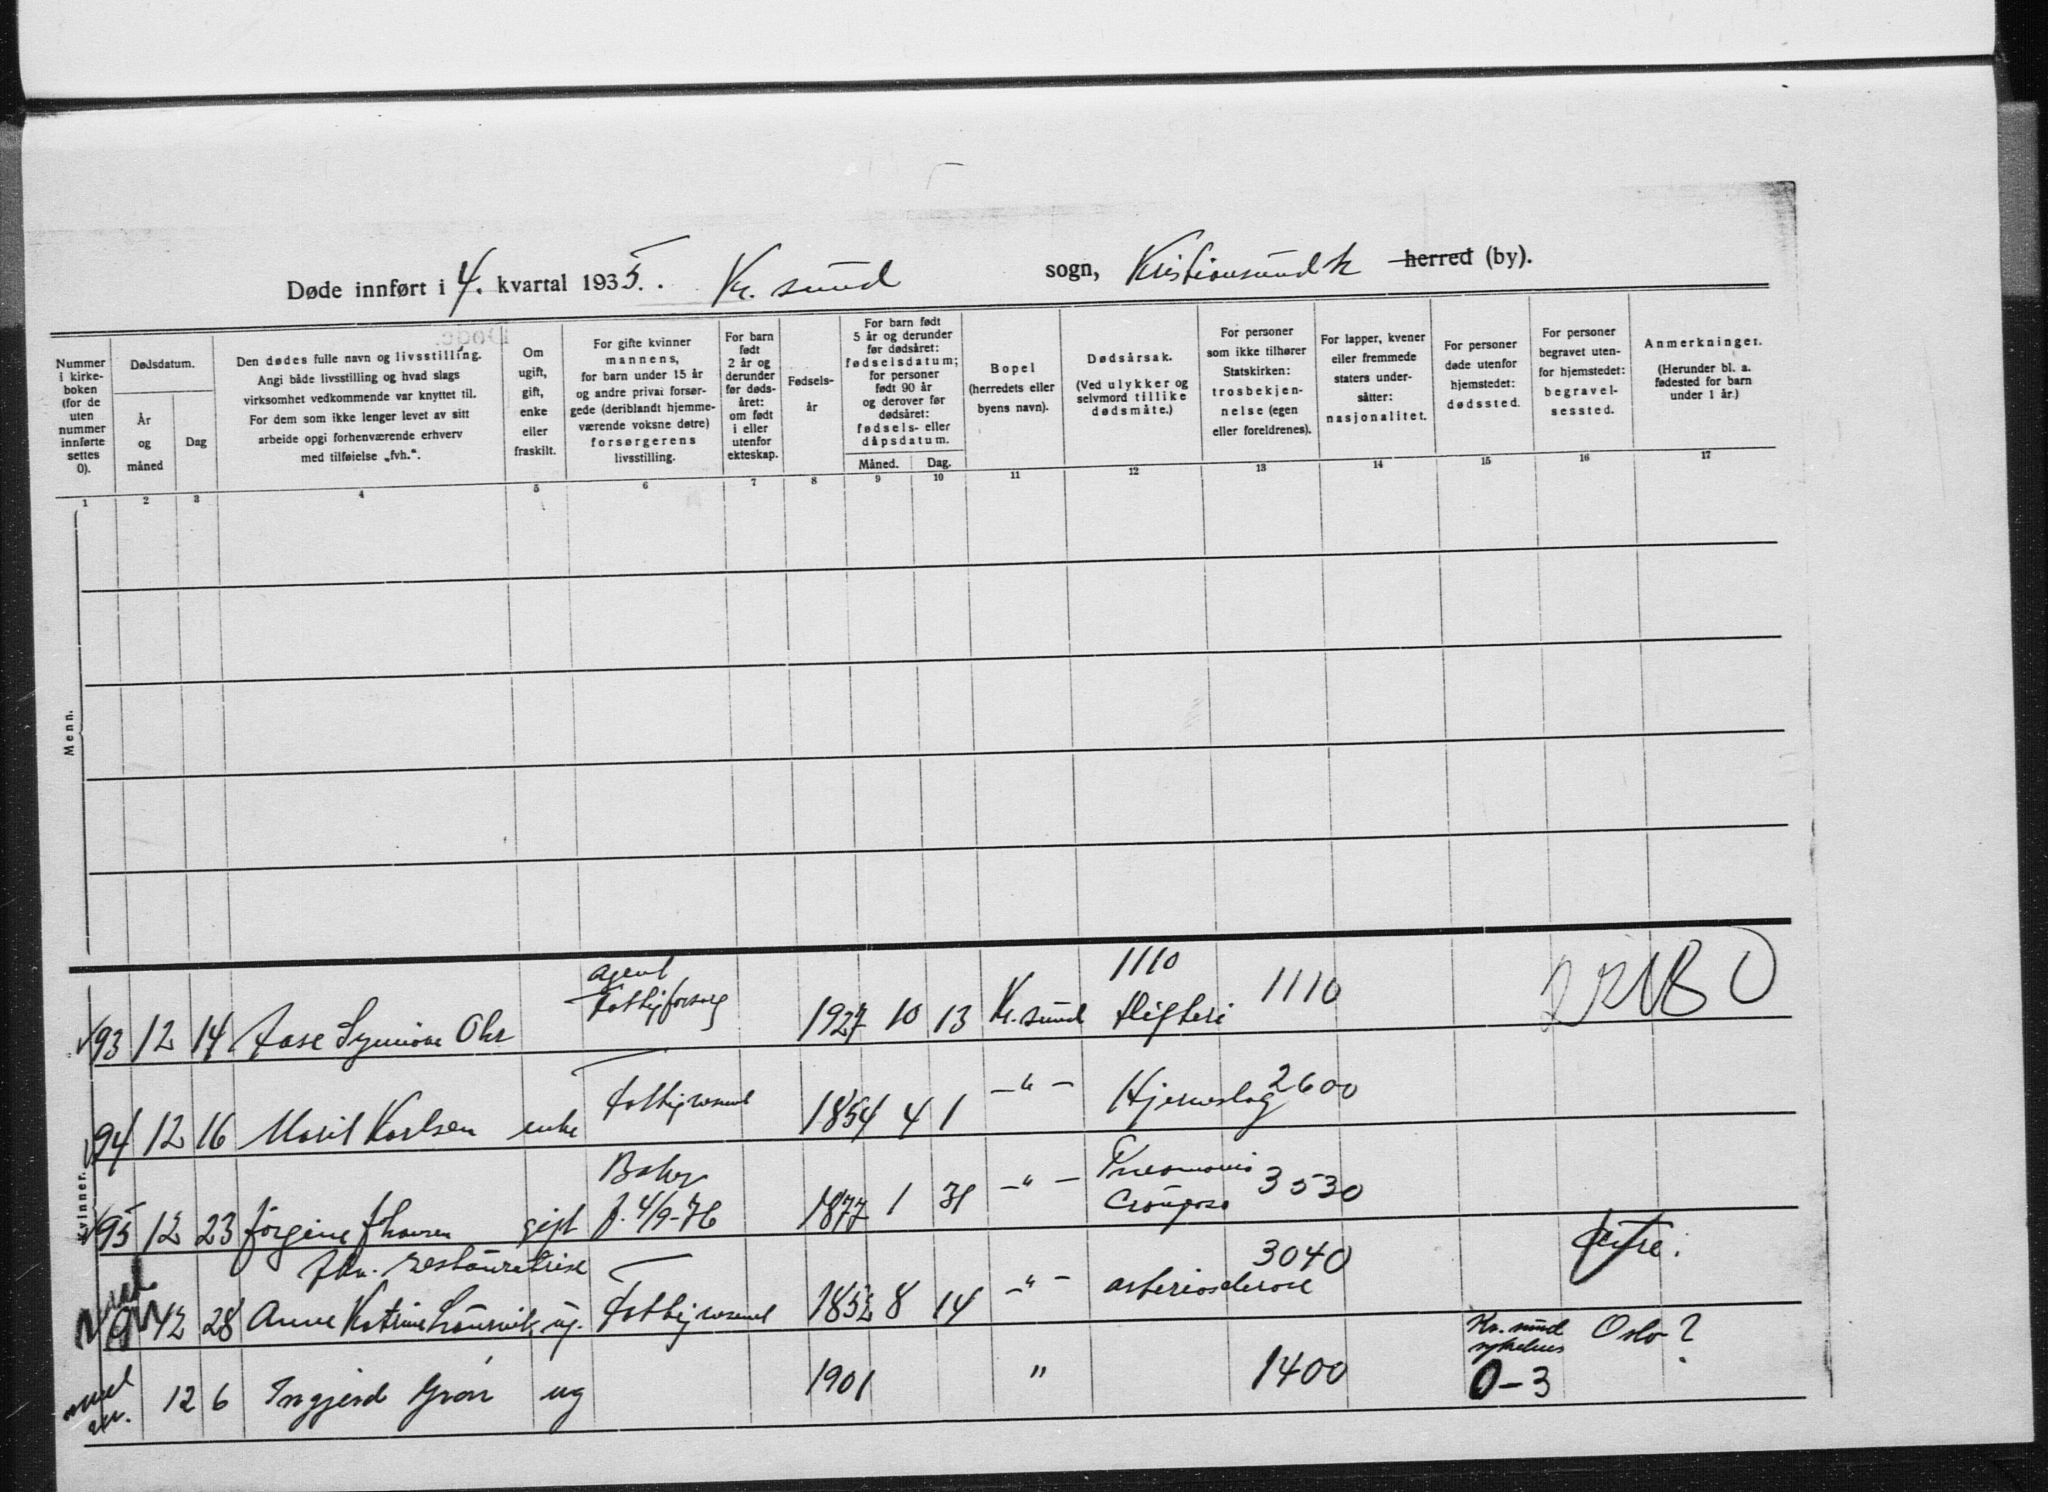 Døde innført i 4. kvartal 1935. Kr. sund sogn, Kristiansund k herred (by).
Nummer i kirkeboken (for de uten nummer innførte settes 0).
Dødsdatum.
År og måned
Dag
Den dødes fulle navn og livsstilling.
Angi både livsstilling og hvad slags
virksomhet vedkommende var knyttet til.
For dem som ikke lenger levet av sitt
arbeide opgi forhenværende erhverv
med tilføielse „fvh.“.
Om ugift, gift, enke eller fraskilt.
For gifte kvinner
mannens,
for barn under 15 år
og andre privat forsør-
gede (deriblandt hjemme-
værende voksne døtre)
forsørgerens
livsstilling.
For barn født 2 år og derunder før døds-året: om født i eller utenfor ekteskap.
Fødsels-
år
For barn født
5 år og derunder
før dødsåret:
fødselsdatum;
for personer
født 90 år
og derover før
dødsåret:
fødsels- eller
dåpsdatum.
Måned. Dag.
Bopel
(herredets eller
byens navn).
Dødsårsak.
(Ved ulykker og
selvmord tillike
dødsmåte.)
For personer
som ikke tilhører
Statskirken:
trosbekjen-
nelse (egen
eller foreldrenes).
For lapper, kvener
eller fremmede
staters under-
såtter:
nasjonalitet.
For personer
døde utenfor
hjemstedet:
dødssted.
For personer
begravet uten-
for hjemstedet:
begravel-
sessted.
Anmerkninger.
(Herunder bl. a.
fødested for barn
under 1 år.)
1 2 3 4 5 6 7 8 9 10 11 12 13 14 15 16 17
Menn.
Kvinner.
agent
1110
93 12 14 Aase Synnøve Ohr Fattigforsørg 1927 10 13 Kr. sund Difteri 1110
94 12 16 Marit Karlsen enke Fattigvesenet 1854 4 1 –"– Hjerneslag 2600
Baker
Pneumonia
95 12 23 Jørgine Thorsen gift f. 4/9-76 1877 1 31 –"– Crouposa 3530
fhv. restauratrise
3040
12 28 Anne Katrine ug. Fattigvesenet 1852 8 14 –"– arteriosclerose
Kr. sund
sykehus Oslo?
12 6 Ingjerd Grøn ug 1901 " 1400 0-3